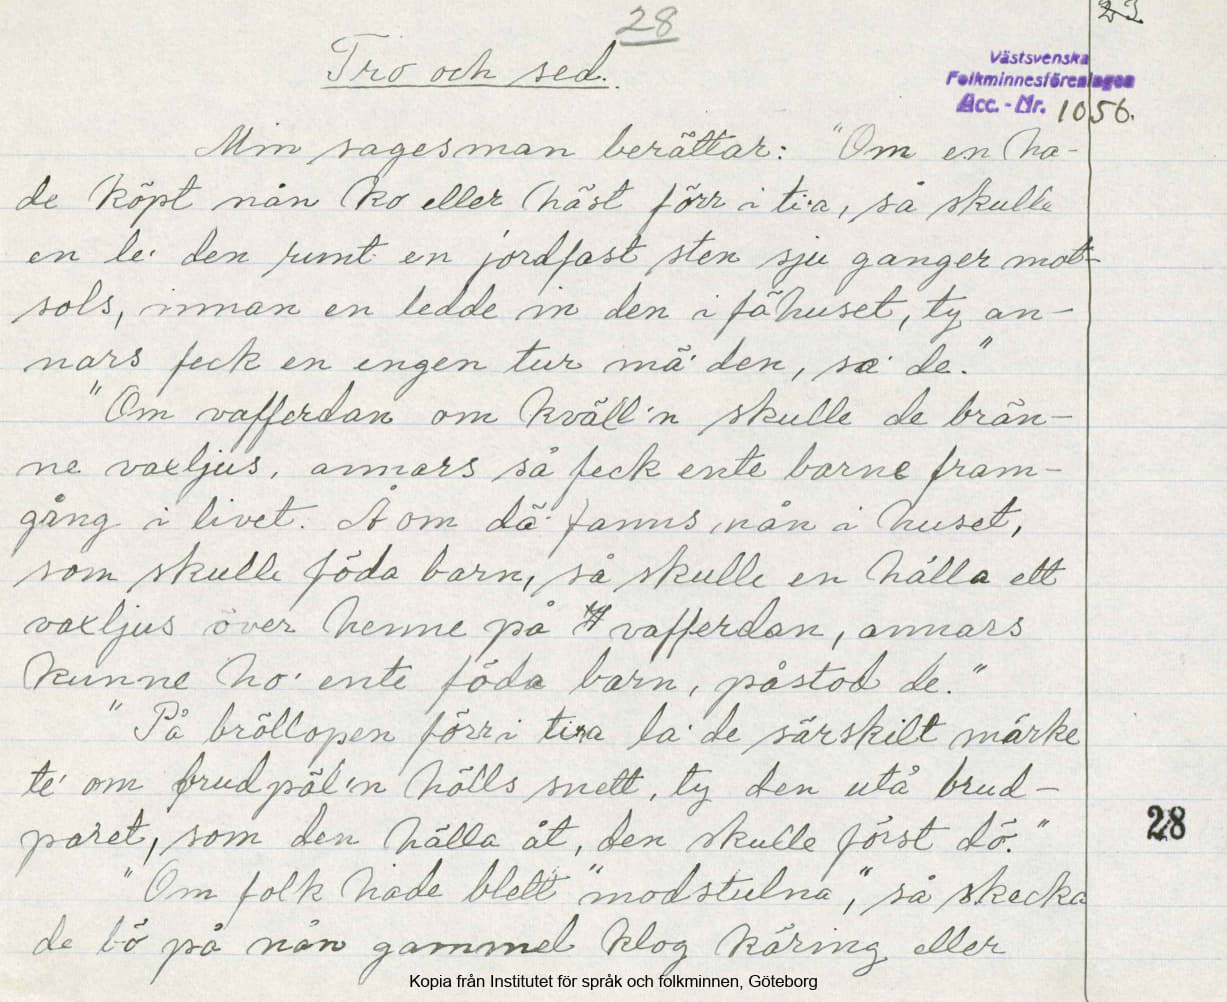 28
23
Tro och sed.
Västsvenska
Folkminnesföreningen
Acc. - Nr. 1056.
Min sagesman berättar: "Om en ha-
de köpt nån ko eller häst förr i ti:a, så skulle
en le' den runt en jordfast sten sju gånger mot-
sols, innan en ledde in den i fähuset, ty an-
nars feck en engen tur mä' den, sa' de."
"Om vafferdan om kväll'n skulle de brän-
ne vaxljus, annars så feck ente barne fram-
gång i livet. Å om dä' fanns nån i huset,
som skulle föda barn, så skulle en hålla ett
vaxljus över henne på vafferdan, annars
kunne ho' ente föda barn, påstod de."
"På bröllopen förr i ti:a la' de särskilt märke
te' om brudpäl'n hölls snett, ty den utå brud-
paret, som den hälla åt, den skulle först dö."
"Om folk hade blett "modstulna", så skecka
de bö på nån gammel klog käring eller
28
Kopia från Institutet för språk och folkminnen, Göteborg